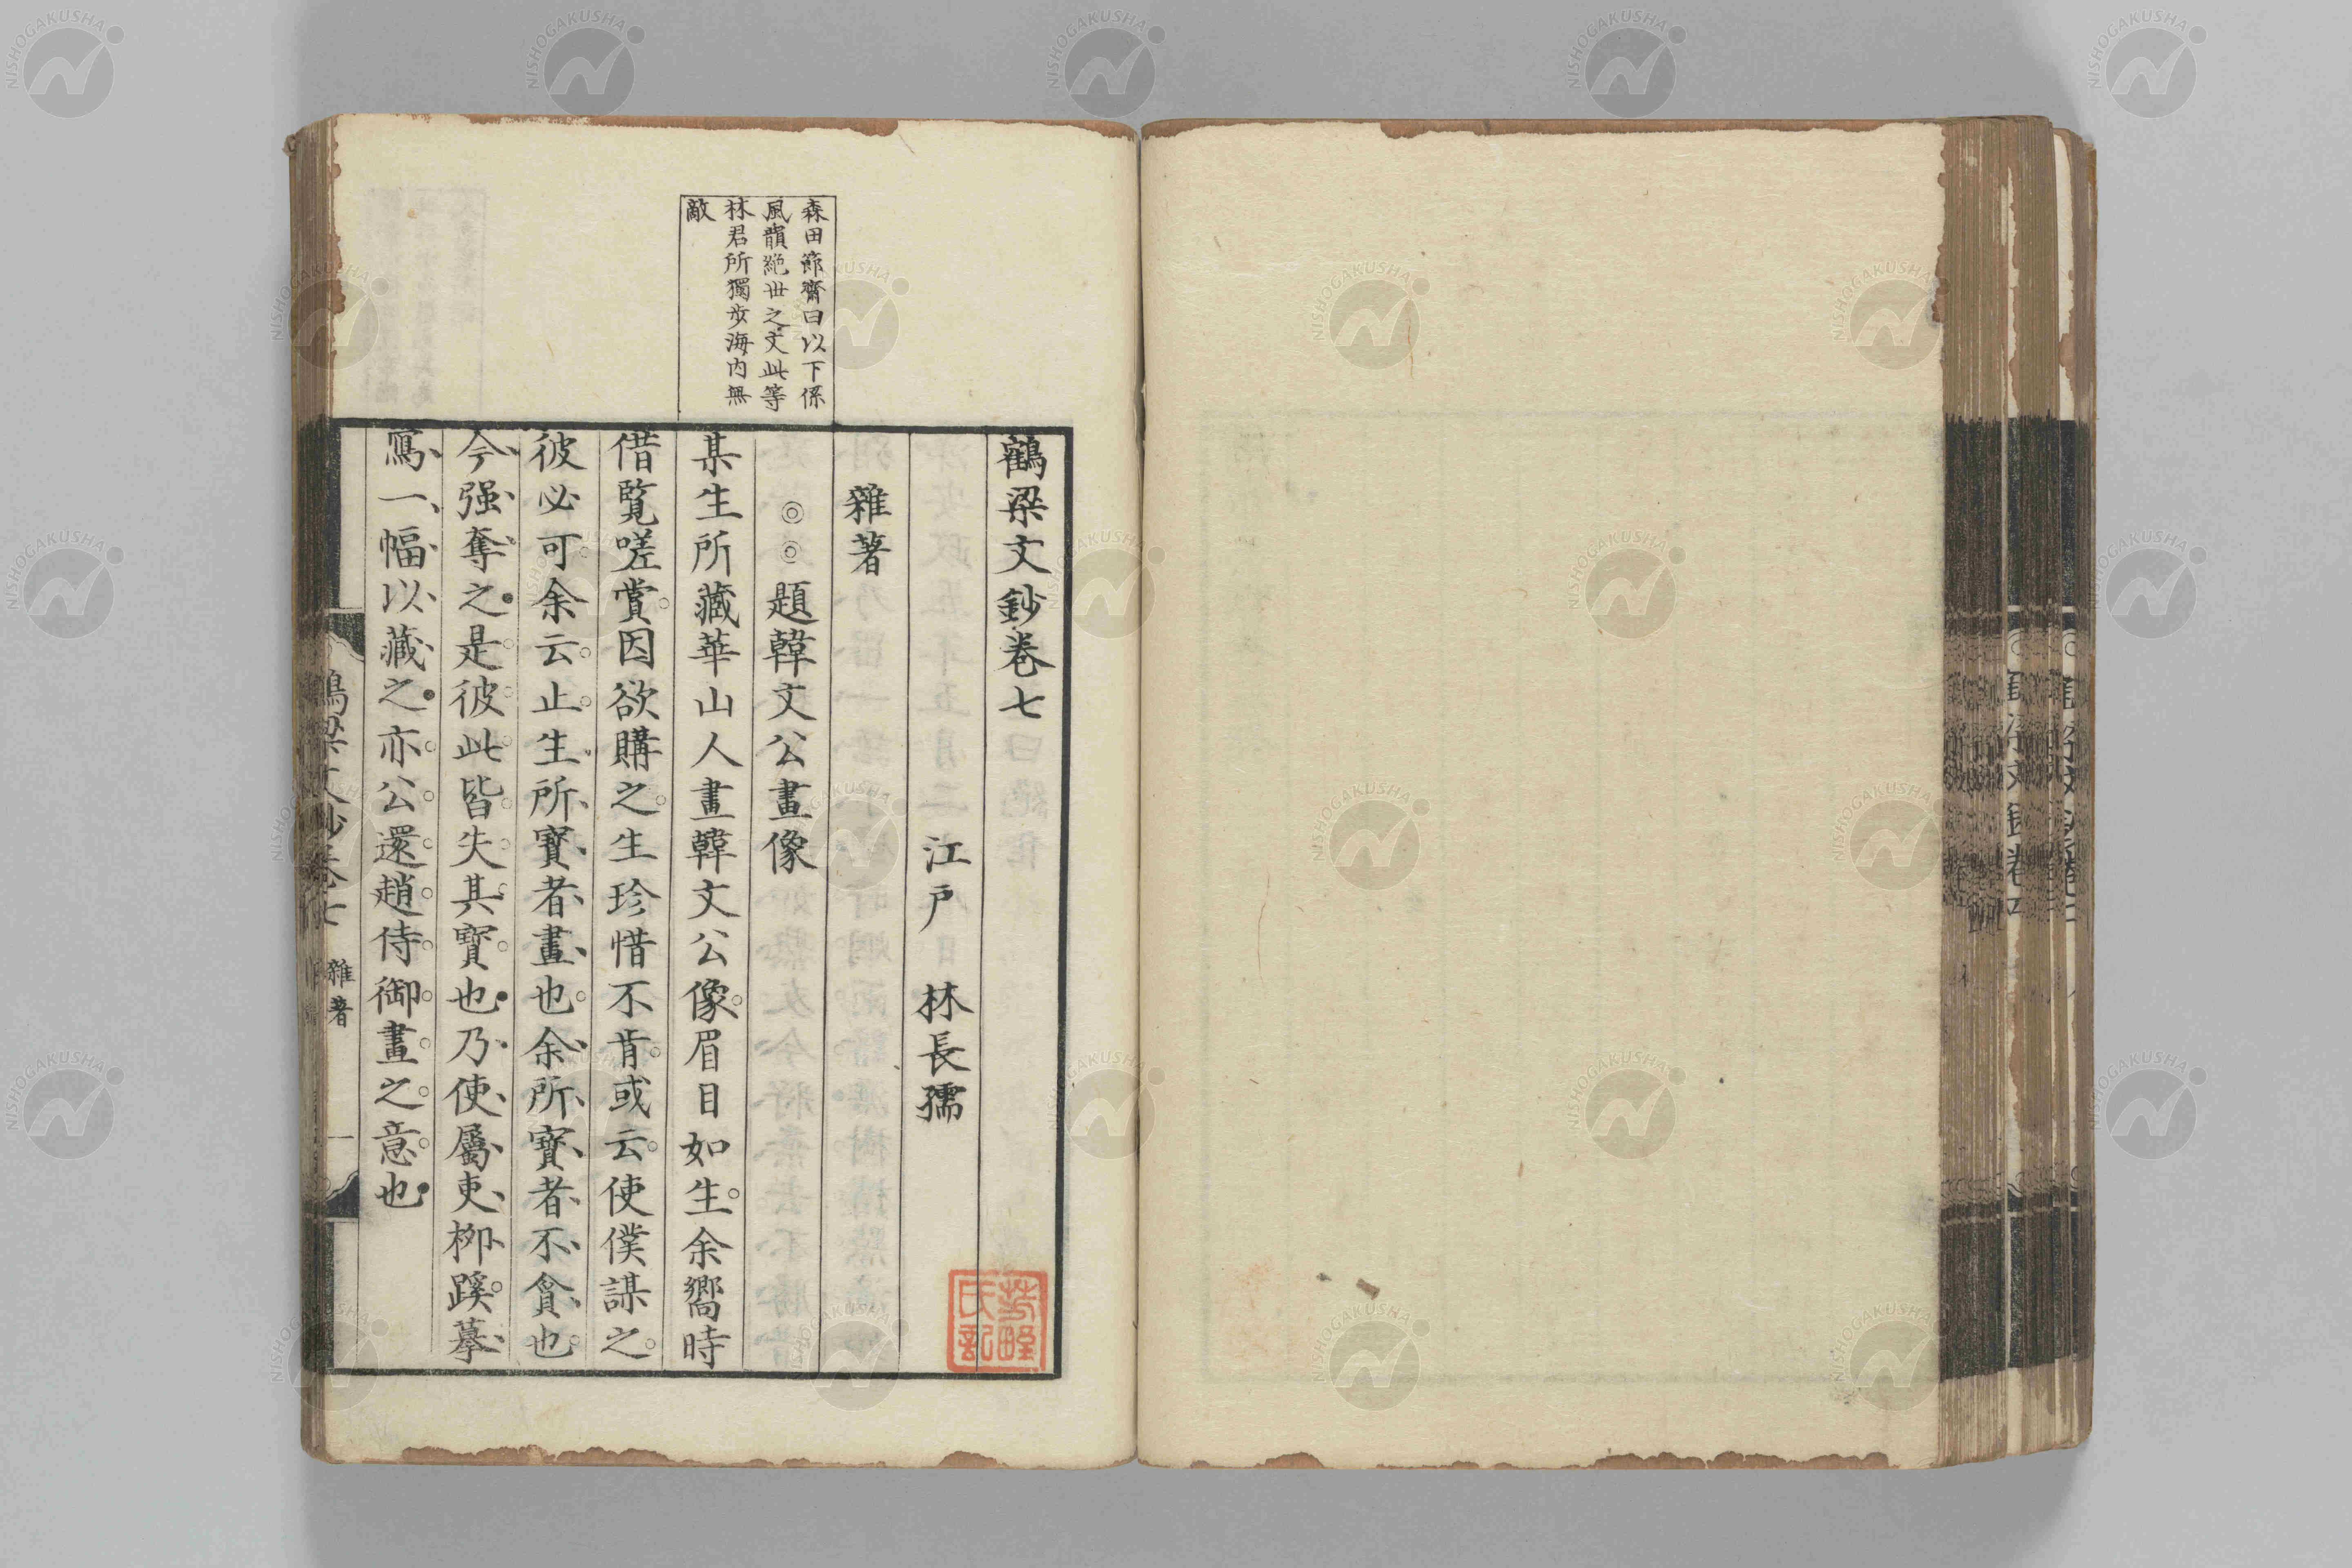 鶴梁文鈔卷七
江戸　林長孺
雜著
◎◎題韓文公畫像
某生所藏華山人畫韓文公像。眉目如生。余嚮時
借覧嗟賞。因欲購之。生珍惜不肯。或云。使僕謀之。
彼必可。余云。止。生所寳者畫也。余所寳者不貪也。
今强奪之。是彼此皆失其寳也。乃使屬吏栁蹊摹
寫一幅以藏之。亦公還趙侍御畫之意也。
森田節齋曰以下係
風韻絶世之文此等
林君所獨步海內無
敵
鶴梁文鈔卷七
雜著
一
NISHOGAKUSHA